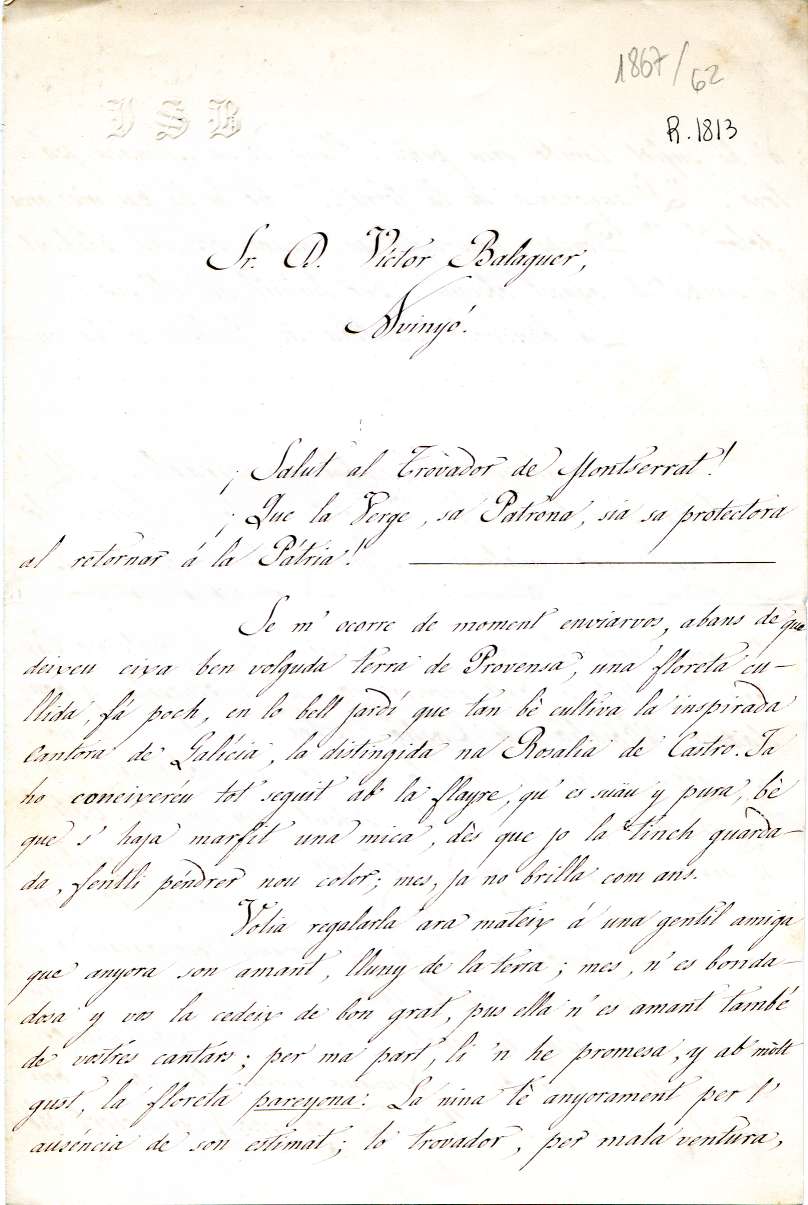 1867/62
V S B
R. 1813
Sr. D. Victor Balaguer,
Avinyó.
¡Salut al Trovador de Montserrat!
¡Que la Verge, sa Patrona, sia sa protectora
al retornar á la Pátria!
Se m' ocorre de moment enviarvos, abans de que
deixeu eixa ben volguda terra de Provensa, una floreta cu-
llida, fá poch, en lo bell jardí que tan bè cultiva la inspirada
cantora de Galícia, la distingida na Rosalia de Castro. Ja
ho coneixeréu tot seguit ab la flayre, qu' es suáu y pura, bè
que s' haja marfit una mica, dès que jo la tinch guarda-
da, fentli péndrer nou color; mes, ja no brilla com ans.
Volia regalarla ara mateix á una gentil amiga
que anyora son amant, lluny de la terra; mes, n' es bonda-
dosa y vos la cedeix de bon grat, pus ella n' es amant també
de vostres cantárs; per ma part, li 'n he promesa, y ab mòlt
gust, la floreta pareyona: La nina tè anyorament per l'
auséncia de son estimat; lo trovador, per mala ventura,